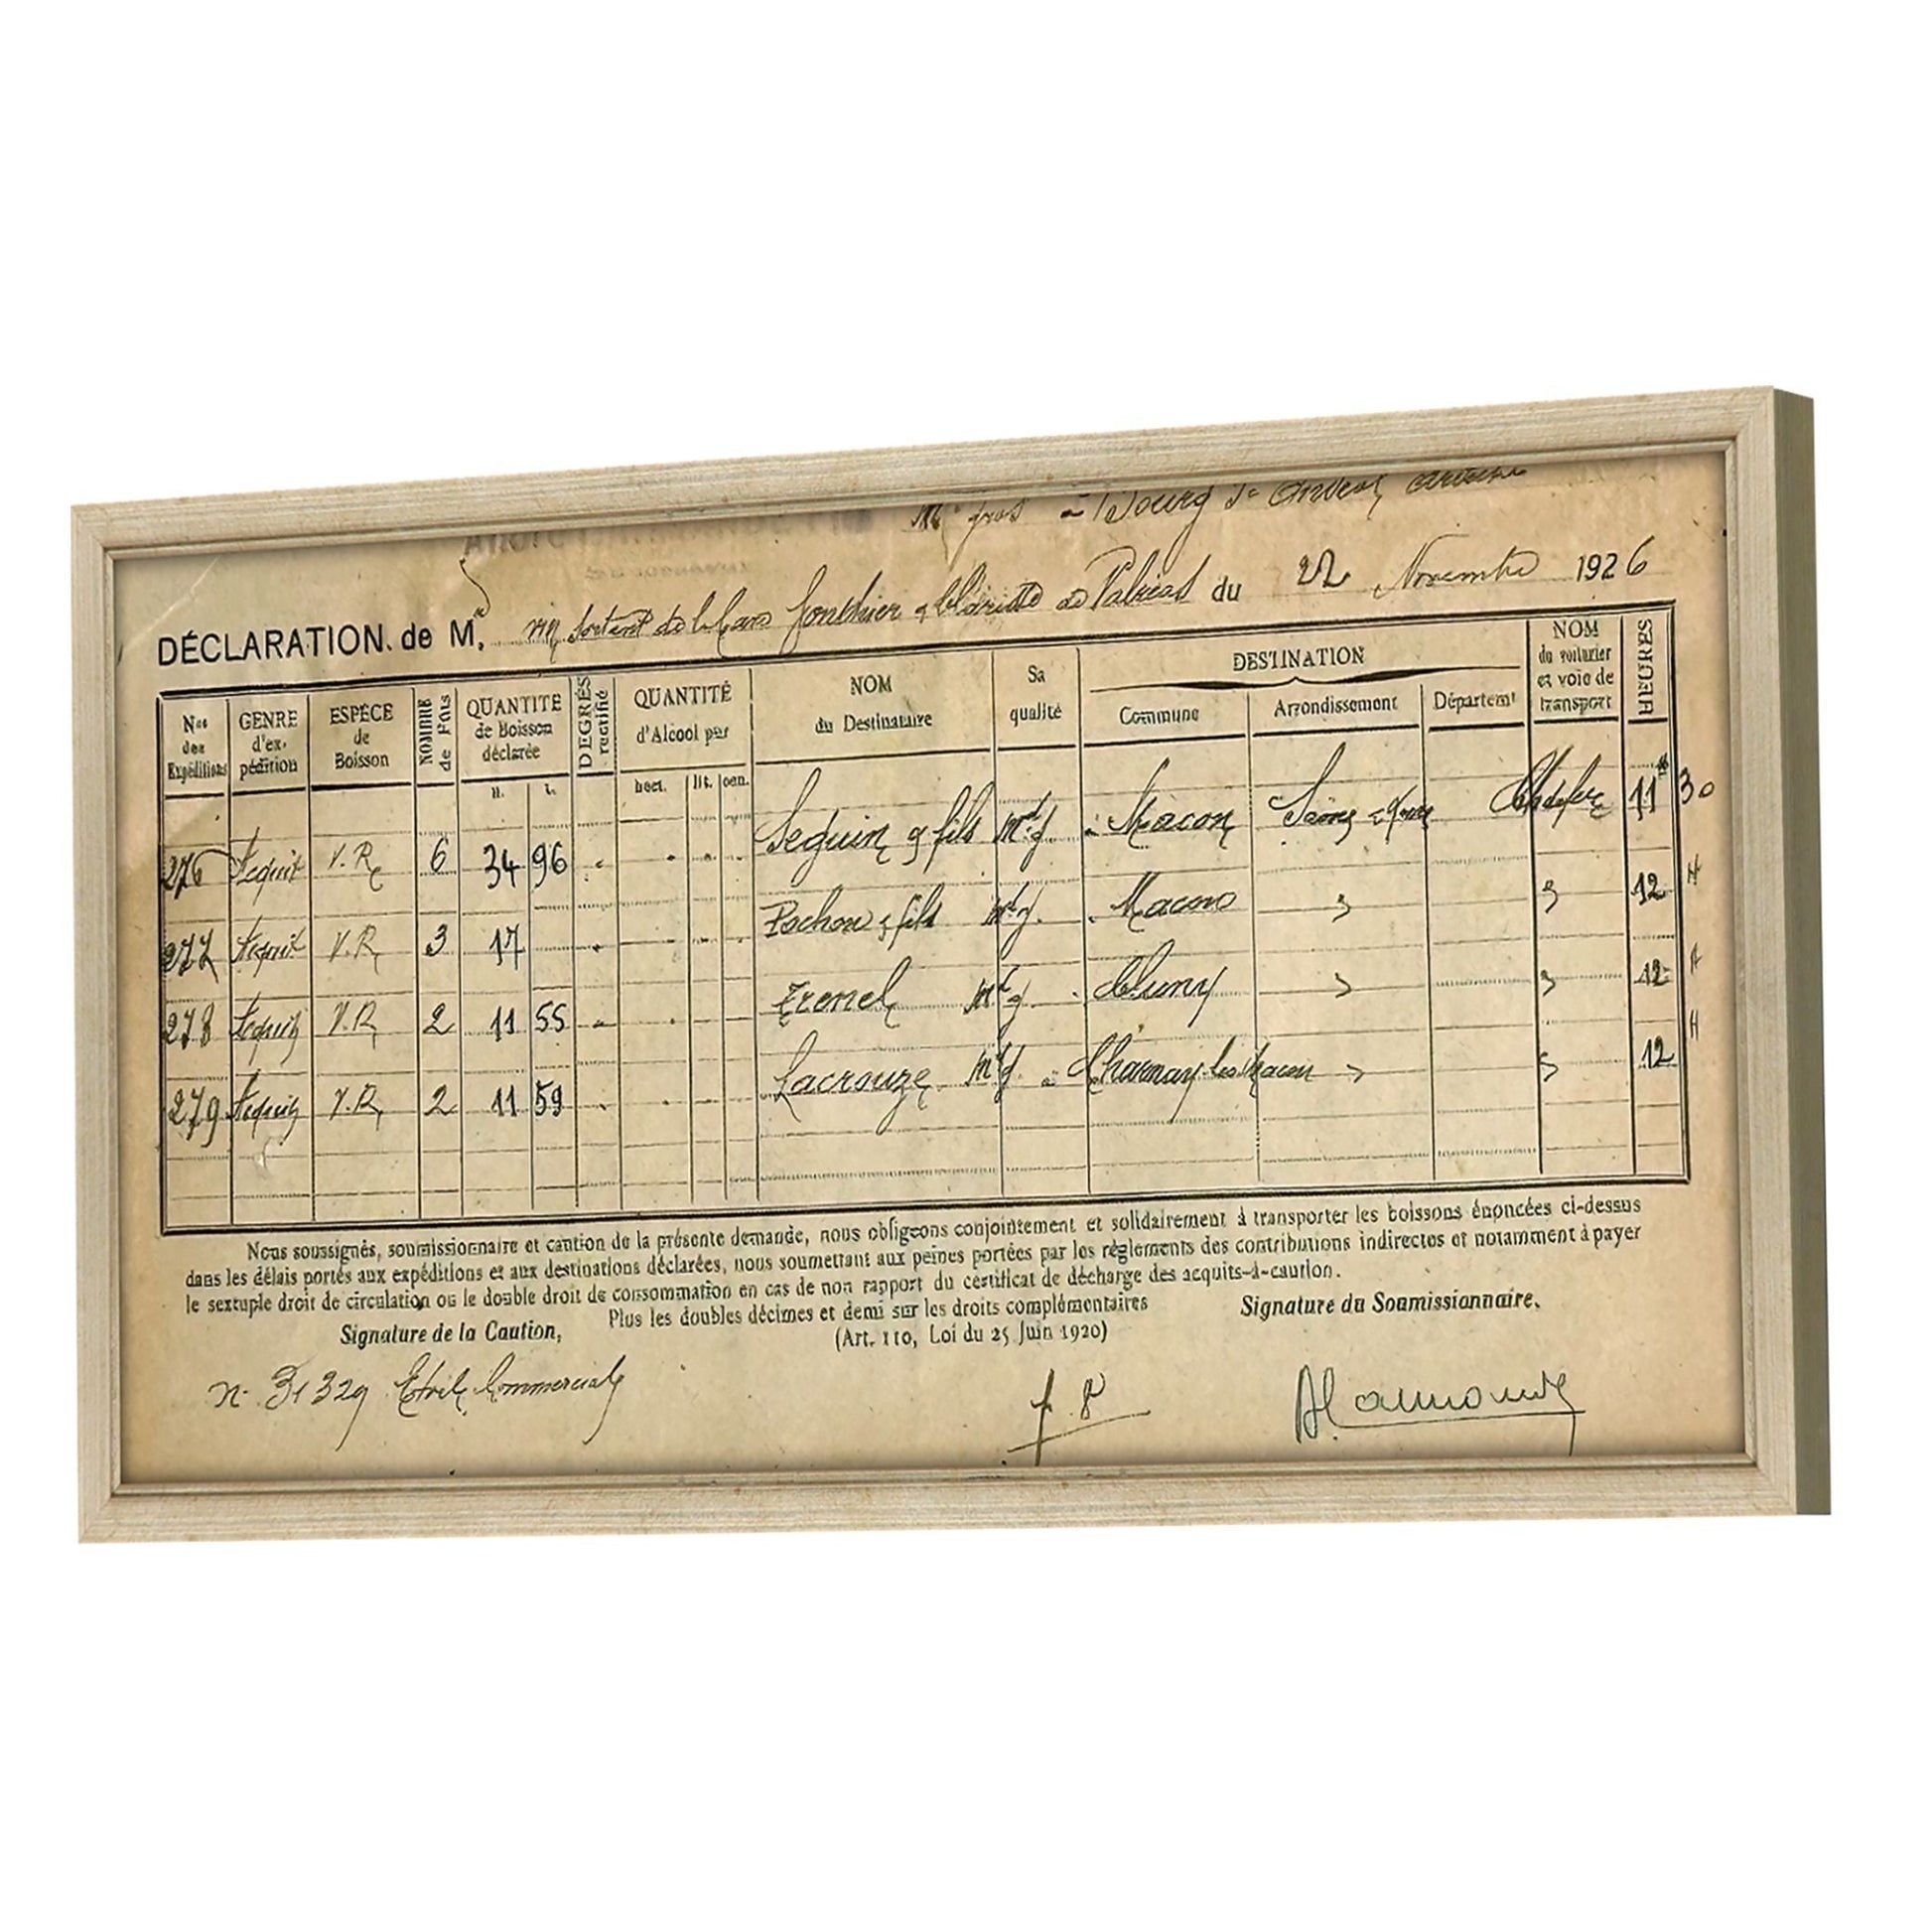 Md gros à Bourg St Andéol Ardèche
DÉCLARATION de M. vin sortant de la Gare du 22 Novembre 1926
Nos des Expéditions
GENRE d'expédition
ESPÈCE de Boisson
NOMBRE de Fûts
QUANTITÉ de Boisson déclarée
DEGRÉS rectifié
QUANTITÉ d'Alcool pur
NOM du Destinataire
Sa qualité
DESTINATION
Commune
Arrondissement
Département
NOM du voiturier et voie de transport
HEURES
H. L. hect. lit. cen.
276 Acquit V.R. 6 34 96 Seguin & fils Md g. à Macon Saône & Loire Ch de fer 11 H 30
277 Acquit V.R. 3 17 Pochon & fils Md g. à Macon " " 12 H
278 Acquit V.R. 2 11 55 Trenel Md g. à Cluny " " 12 H
279 Acquit V.R. 2 11 59 Lacrouze Md g. à Charnay les Macon " " 12 H
Nous soussignés, soumissionnaire et caution de la présente demande, nous obligeons conjointement et solidairement à transporter les boissons énoncées ci-dessus
dans les délais portés aux expéditions et aux destinations déclarées, nous soumettant aux peines portées par les règlements des contributions indirectes et notamment à payer
le sextuple droit de circulation ou le double droit de consommation en cas de non rapport du certificat de décharge des acquits-à-caution.
Plus les doubles décimes et demi sur les droits complémentaires
Signature de la Caution,
(Art. 110, Loi du 25 Juin 1920)
Signature du Soumissionnaire.
n. 31329